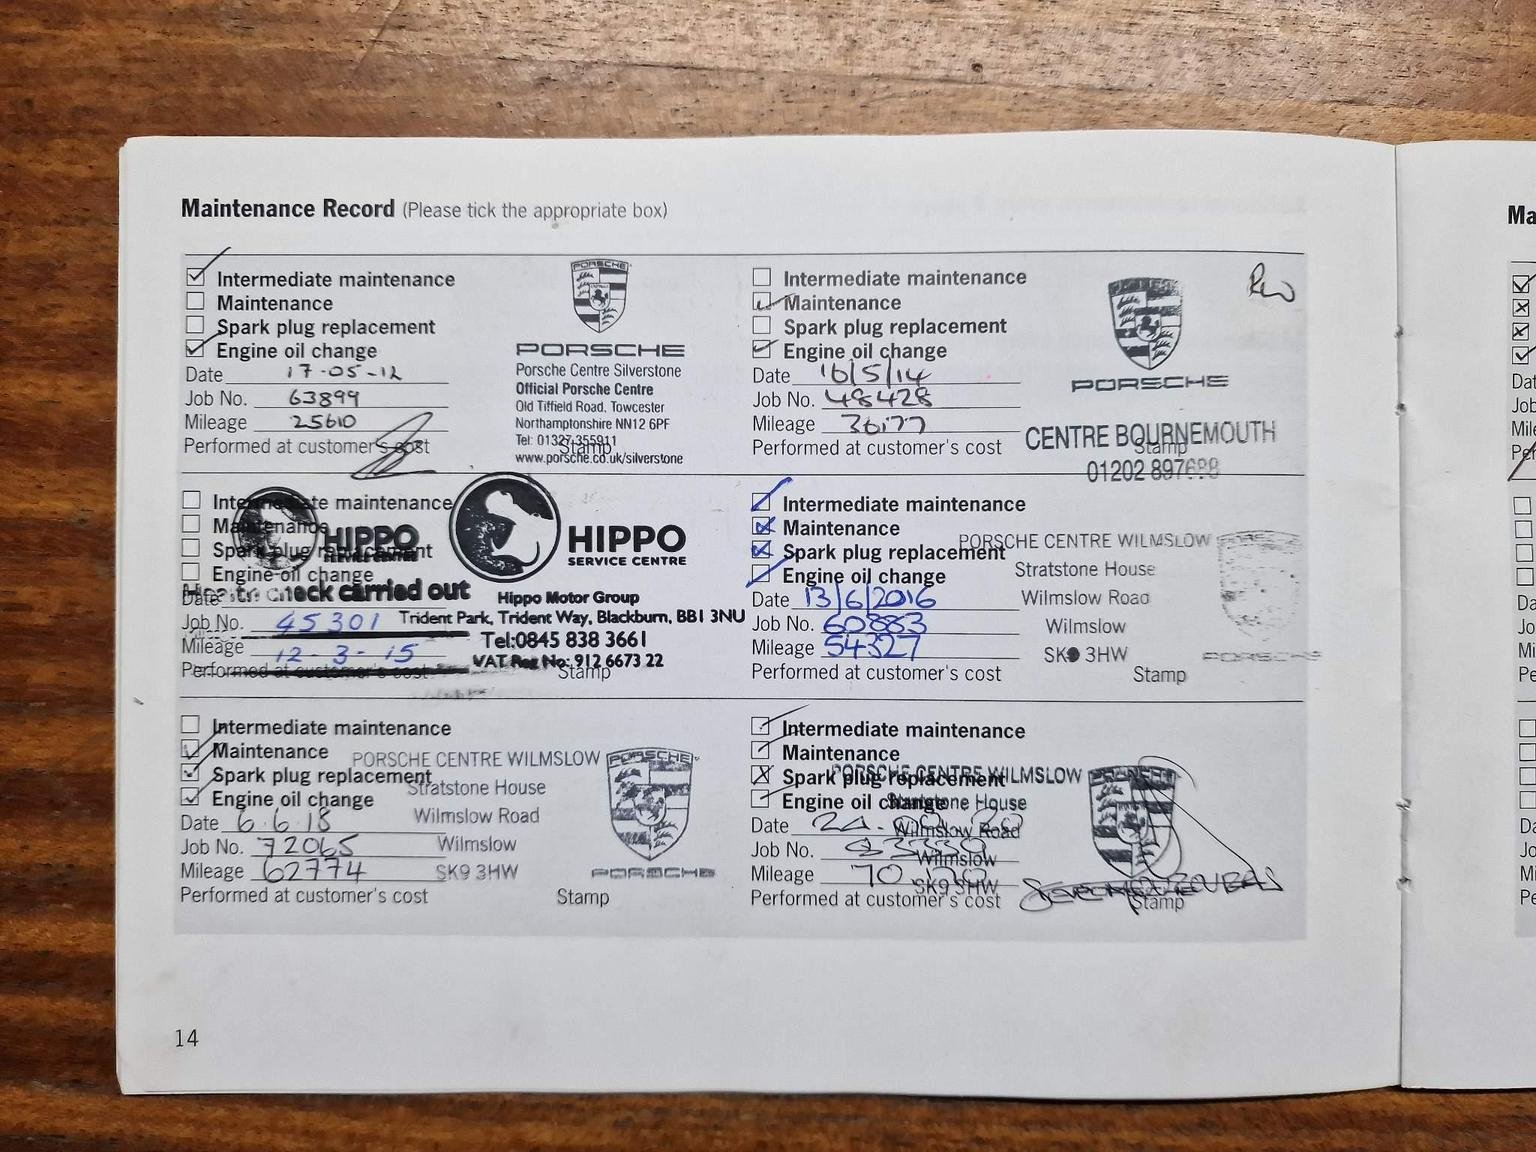 Maintenance Record (Please tick the appropriate box)
Intermediate maintenance
Maintenance
Spark plug replacement
Engine oil change
Date 17-05-12
Job No. 63899
Mileage 25610
Performed at customer's cost
PORSCHE
PORSCHE
Porsche Centre Silverstone
Official Porsche Centre
Old Tiffield Road, Towcester
Northamptonshire NN12 6PF
Tel: 01327 355911
Stamp
www.porsche.co.uk/silverstone
Intermediate maintenance
Maintenance
Spark plug replacement
Engine oil change
Date 16/5/14
Job No. 48428
Mileage 36177
Performed at customer's cost
PORSCHE
CENTRE BOURNEMOUTH
Stamp
01202 897688
Intermediate maintenance
Maintenance
Spark plug replacement
Engine oil change
check carried out
Date
Job No. 45301
Mileage 12-3-15
Performed at customer's cost
HIPPO
SERVICE CENTRE
HIPPO
SERVICE CENTRE
Hippo Motor Group
Trident Park, Trident Way, Blackburn, BB1 3NU
Tel:0845 838 3661
VAT Reg No: 912 6673 22
Stamp
Intermediate maintenance
Maintenance
Spark plug replacement
Engine oil change
Date 13/6/2016
Job No. 60883
Mileage 54327
Performed at customer's cost
PORSCHE CENTRE WILMSLOW
Stratstone House
Wilmslow Road
Wilmslow
SK9 3HW
PORSCHE
Stamp
Intermediate maintenance
Maintenance
Spark plug replacement
Engine oil change
Date 6.6.18
Job No. 72065
Mileage 62774
Performed at customer's cost
PORSCHE CENTRE WILMSLOW
Stratstone House
Wilmslow Road
Wilmslow
SK9 3HW
PORSCHE
PORSCHE
Stamp
Intermediate maintenance
Maintenance
Spark plug replacement
Engine oil change
Date
Job No.
Mileage
Performed at customer's cost
PORSCHE CENTRE WILMSLOW
Stratstone House
Wilmslow Road
Wilmslow
SK9 3HW
Stamp
14
Ma